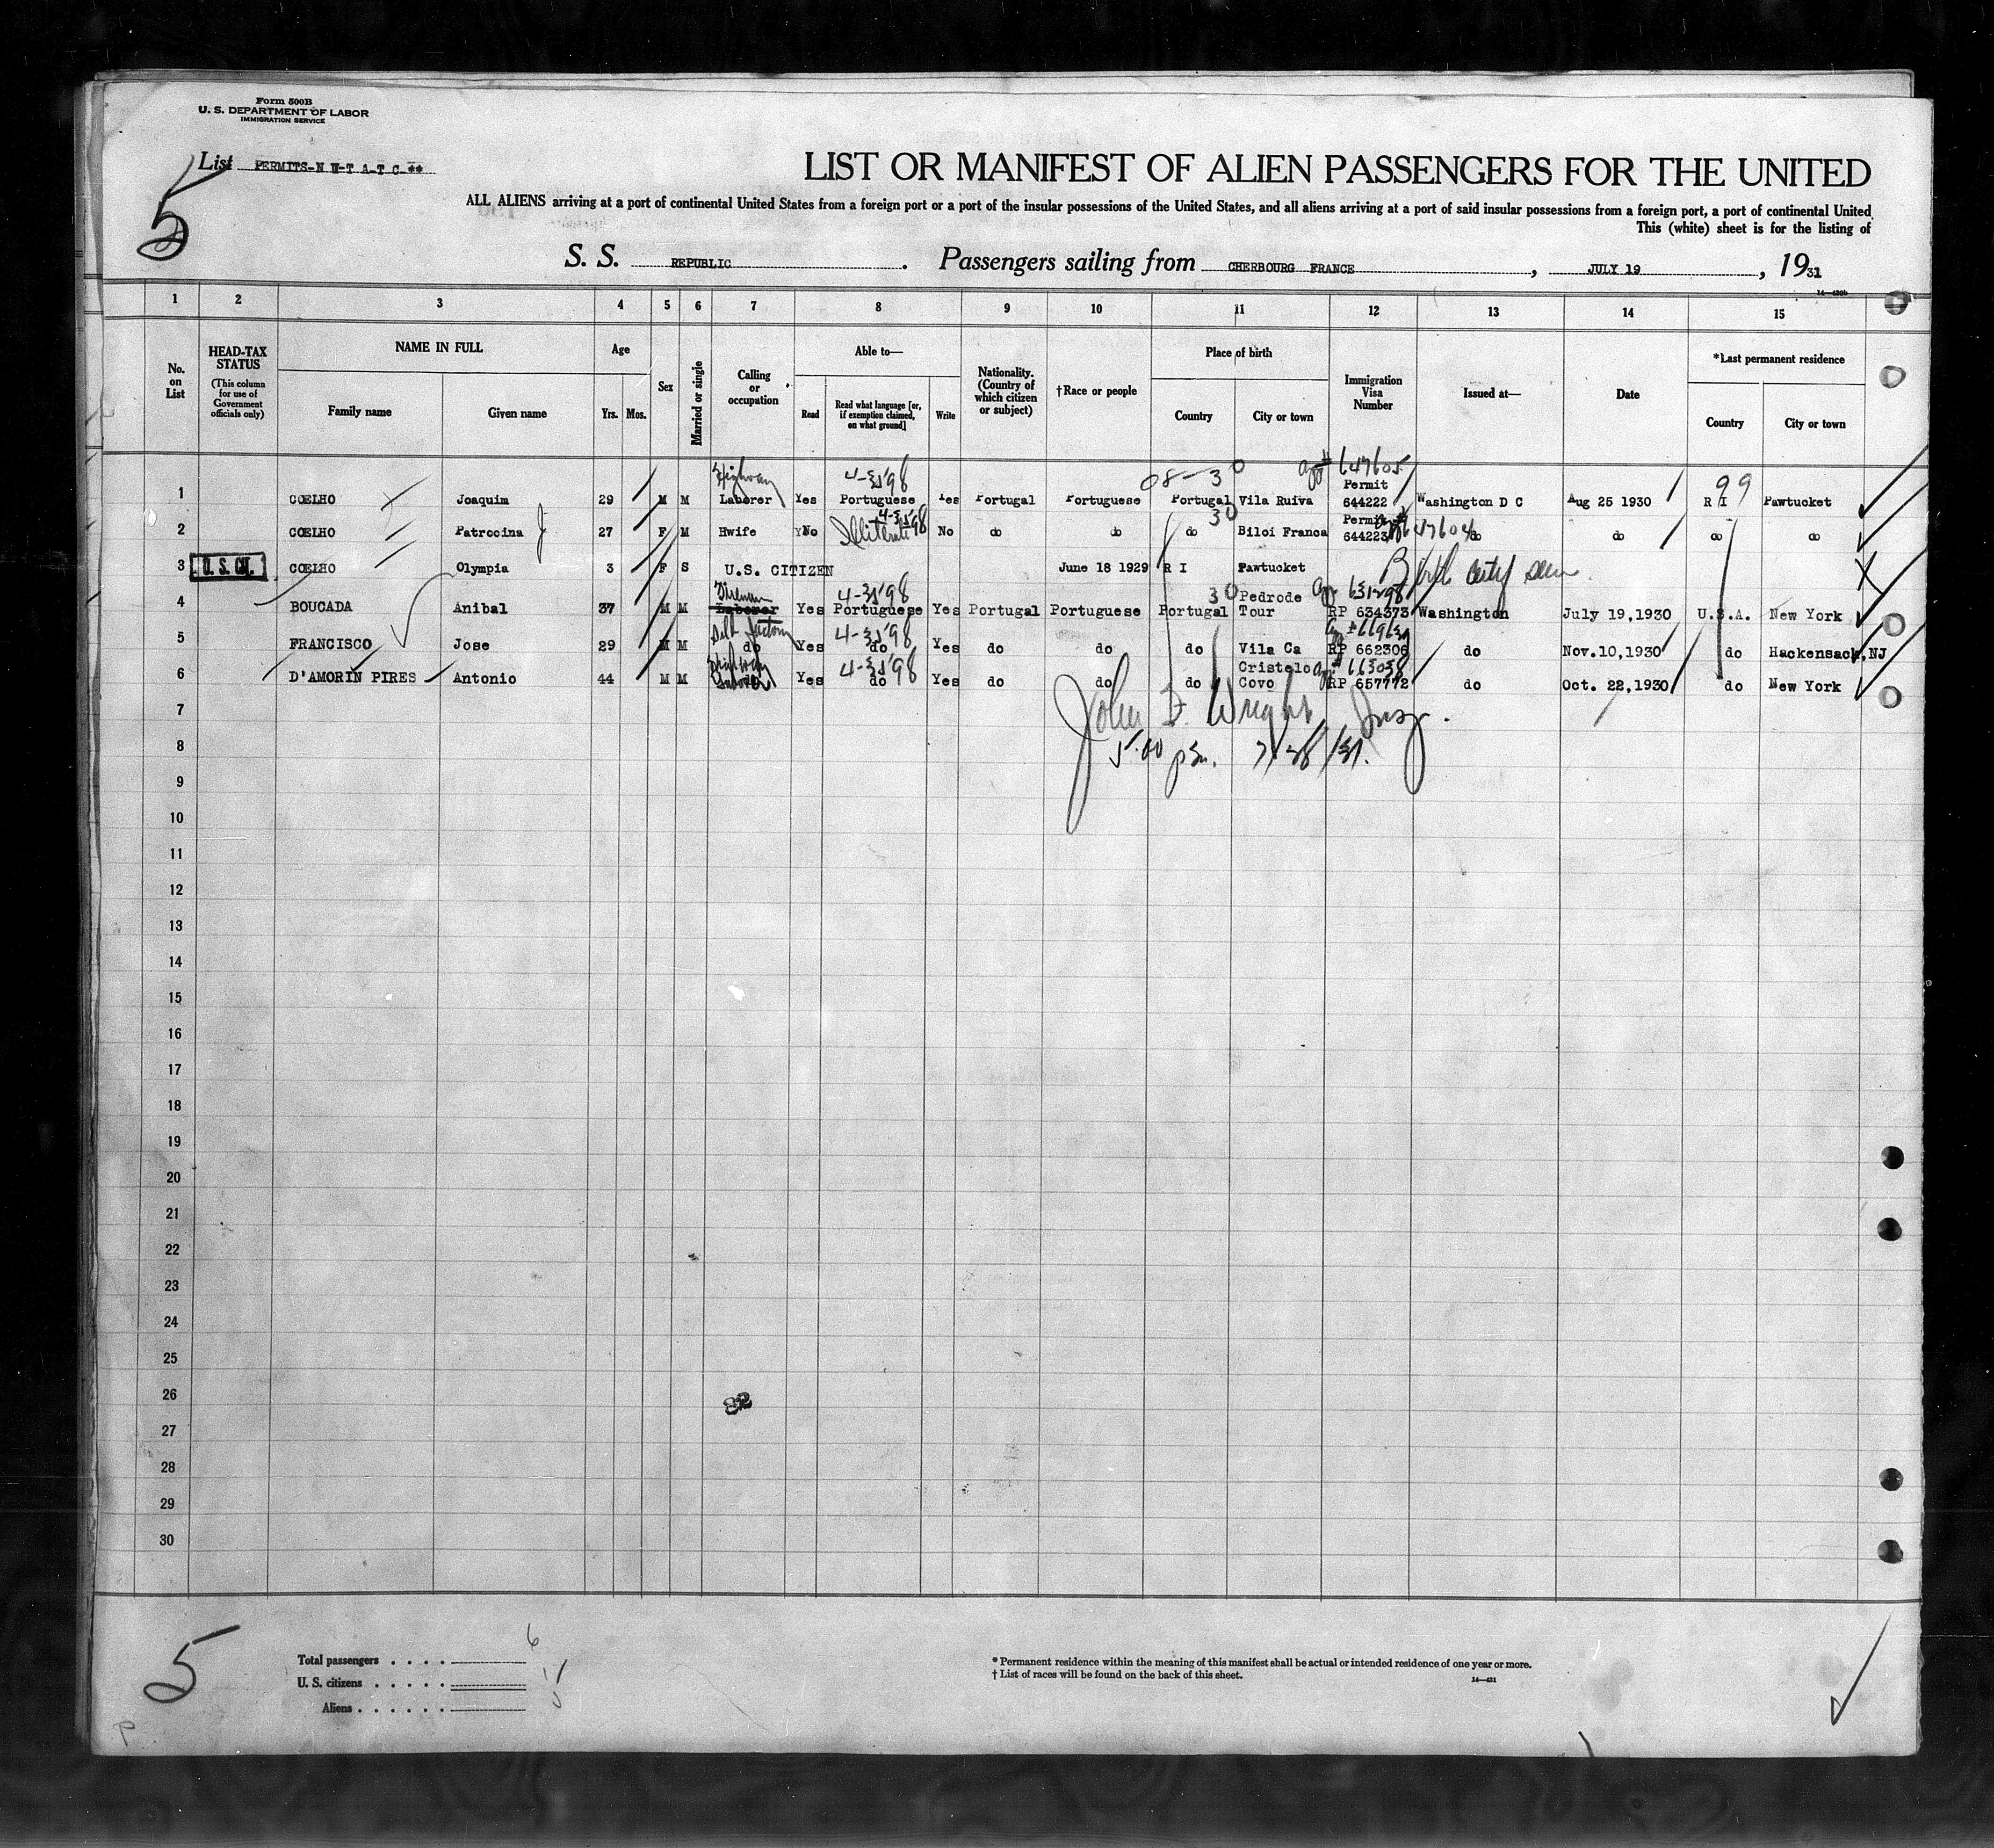 Form 500B
U. S. DEPARTMENT OF LABOR
IMMIGRATION SERVICE
List PERMITS-N W-T A-T C.**
5
LIST OR MANIFEST OF ALIEN PASSENGERS FOR THE UNITED
ALL ALIENS arriving at a port of continental United States from a foreign port or a port of the insular possessions of the United States, and all aliens arriving at a port of said insular possessions from a foreign port, a port of continental United
This (white) sheet is for the listing of
S. S. REPUBLIC . Passengers sailing from CHERBOURG FRANCE , JULY 19 , 1931
14—420b
1 2 3 4 5 6 7 8 9 10 11 12 13 14 15
No. on List
HEAD-TAX STATUS
(This column for use of Government officials only)
NAME IN FULL
Family name Given name
Age
Yrs. Mos.
Sex
Married or single
Calling or occupation
Able to—
Read
Read what language [or, if exemption claimed, on what ground]
Write
Nationality. (Country of which citizen or subject)
†Race or people
Place of birth
Country City or town
Immigration Visa Number
Issued at—
Date
*Last permanent residence
Country City or town
Highway 4-31'98 08-30 647605
1 COELHO Joaquim 29 M M Laborer Yes Portuguese Yes Portugal Portuguese Portugal Vila Ruiva Permit 644222 Washington D C Aug 25 1930 99 R I Pawtucket
2 COELHO Patrocina J 27 F M Hwife No Illiterate 4-31'98 No do do do 30 Biloi Franca Permit 644223 647604 do do do do
3 U. S. CIT. COELHO Olympia 3 F S U.S. CITIZEN June 18 1929 R I Pawtucket Birth
4 BOUCADA Anibal 37 M M Fireman Laborer Yes Portuguese 4-31'98 Yes Portugal Portuguese Portugal 30 Pedrode Tour RP 634373 Washington July 19,1930 U.S.A. New York
5 FRANCISCO Jose 29 M M Silk factory do Yes do 4-31'98 Yes do do do Vila Ca RP 662306 do Nov.10,1930 do Hackensack,NJ
6 D'AMORIN PIRES Antonio 44 M M Yes do 4-31'98 Yes do do do Cristelo Covo 663038 RP 657772 do Oct. 22,1930 do New York
John D. Wright Insp.
5:00 pm. 7/28/31.
7
8
9
10
11
12
13
14
15
16
17
18
19
20
21
22
23
24
25
26
82
27
28
29
30
5
Total passengers . . . . 6
U. S. citizens . . . . . 1
Aliens . . . . . . 5
* Permanent residence within the meaning of this manifest shall be actual or intended residence of one year or more.
† List of races will be found on the back of this sheet.
14—421
P